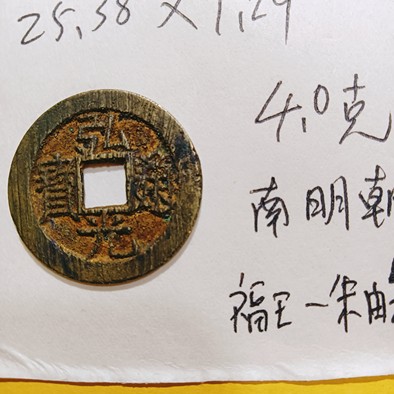 25.58 × 1.29
弘光通寶
4.0克
南明朝
福王一朱由